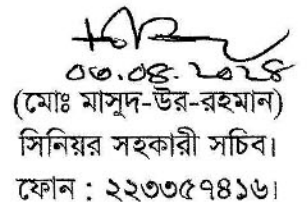 ০৩.০৪.২০২৪
(মোঃ মাসুদ-উর-রহমান)
সিনিয়র সহকারী সচিব।
ফোন : ২২৩৩৫৭৪১৬।